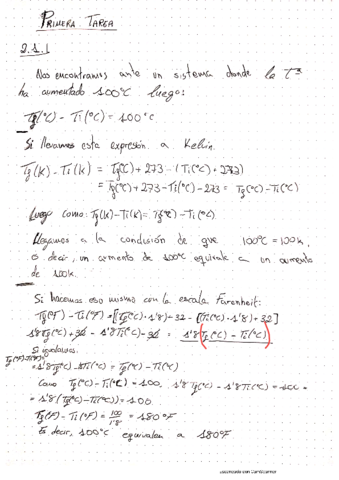 PRIMERA TAREA
2.1.1
Nos encontramos ante un sistema donde la Tª
ha aumentado 100ºC luego:
Tf(ºC) - Ti(ºC) = 100ºC
Si llevamos esta expresión a Kelvin
Tf(K) - Ti(K) = Tf(ºC) + 273 - (Ti(ºC) + 273)
= Tf(ºC) + 273 - Ti(ºC) - 273 = Tf(ºC) - Ti(ºC)
Luego como: Tf(K) - Ti(K) = Tf(ºC) - Ti(ºC)
Llegamos a la condición de que 100ºC = 100K,
es decir, un aumento de 100ºC equivale a un aumento
de 100K.
Si hacemos eso mismo con la escala Farenheit:
Tf(ºF) - Ti(ºF) = [(Tf(ºC) · 1'8) + 32 - [(Ti(ºC) · 1'8) + 32]
1'8 Tf(ºC) + 32 - 1'8 Ti(ºC) - 32 = 1'8 (Tf(ºC) - Ti(ºC))
Si igualamos
Como Tf(ºC) - Ti(ºC) = 100. 1'8 Tf(ºC) - 1'8 Ti(ºC) =
= 1'8 (Tf(ºC) - Ti(ºC)) = 100.
Tf(ºF) - Ti(ºF) = 100/1'8 = 180ºF
Es decir, 100ºC equivalen a 180ºF
Escaneado con CamScanner